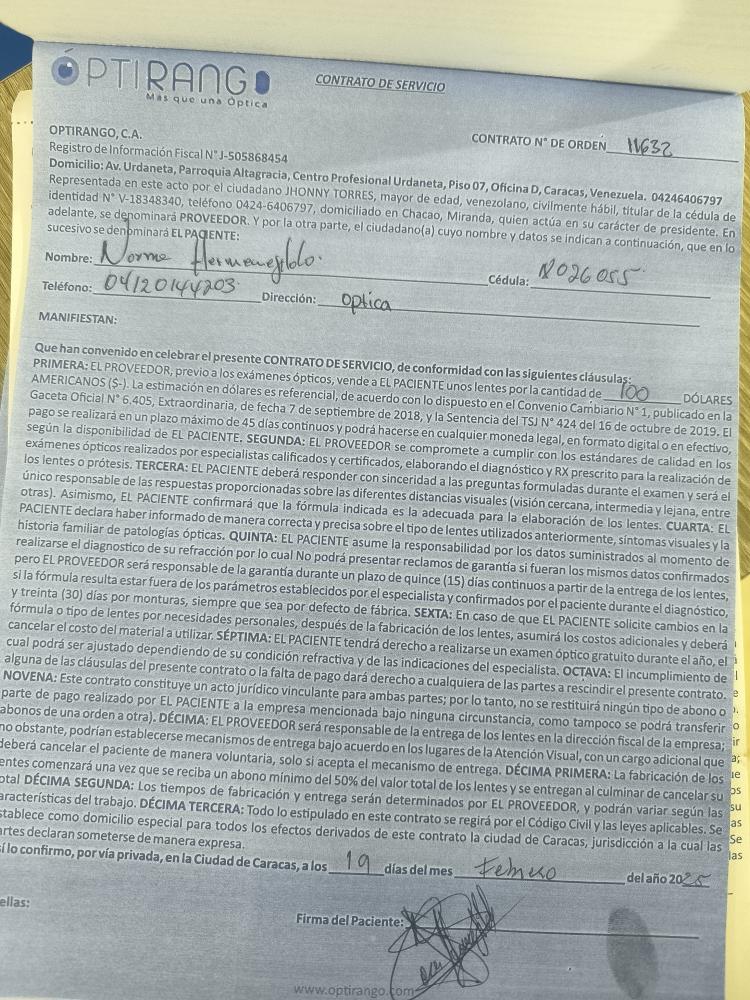 ÓPTIRANGO
Más que una Óptica
CONTRATO DE SERVICIO
OPTIRANGO, C.A.
CONTRATO N° DE ORDEN 11632
Registro de Información Fiscal N° J-505868454
Domicilio: Av. Urdaneta, Parroquia Altagracia, Centro Profesional Urdaneta, Piso 07, Oficina D, Caracas, Venezuela. 04246406797
Representada en este acto por el ciudadano JHONNY TORRES, mayor de edad, venezolano, civilmente hábil, titular de la cédula de
identidad N° V-18348340, teléfono 0424-6406797, domiciliado en Chacao, Miranda, quien actúa en su carácter de presidente. En
adelante, se denominará PROVEEDOR. Y por la otra parte, el ciudadano(a) cuyo nombre y datos se indican a continuación, que en lo
sucesivo se denominará EL PACIENTE:
Nombre: Norma Hermenegildo.
Cédula: 8026055
Teléfono: 04120144203
Dirección: Optica
MANIFIESTAN:
Que han convenido en celebrar el presente CONTRATO DE SERVICIO, de conformidad con las siguientes cláusulas:
PRIMERA: EL PROVEEDOR, previo a los exámenes ópticos, vende a EL PACIENTE unos lentes por la cantidad de 100 DÓLARES
AMERICANOS ($-). La estimación en dólares es referencial, de acuerdo con lo dispuesto en el Convenio Cambiario N° 1, publicado en la
Gaceta Oficial N° 6.405, Extraordinaria, de fecha 7 de septiembre de 2018, y la Sentencia del TSJ N° 424 del 16 de octubre de 2019. El
pago se realizará en un plazo máximo de 45 días continuos y podrá hacerse en cualquier moneda legal, en formato digital o en efectivo,
según la disponibilidad de EL PACIENTE. SEGUNDA: EL PROVEEDOR se compromete a cumplir con los estándares de calidad en los
exámenes ópticos realizados por especialistas calificados y certificados, elaborando el diagnóstico y RX prescrito para la realización de
los lentes o prótesis. TERCERA: EL PACIENTE deberá responder con sinceridad a las preguntas formuladas durante el examen y será el
único responsable de las respuestas proporcionadas sobre las diferentes distancias visuales (visión cercana, intermedia y lejana, entre
otras). Asimismo, EL PACIENTE confirmará que la fórmula indicada es la adecuada para la elaboración de los lentes. CUARTA: EL
PACIENTE declara haber informado de manera correcta y precisa sobre el tipo de lentes utilizados anteriormente, síntomas visuales y la
historia familiar de patologías ópticas. QUINTA: EL PACIENTE asume la responsabilidad por los datos suministrados al momento de
realizarse el diagnostico de su refracción por lo cual No podrá presentar reclamos de garantía si fueran los mismos datos confirmados
pero EL PROVEEDOR será responsable de la garantía durante un plazo de quince (15) días continuos a partir de la entrega de los lentes,
si la fórmula resulta estar fuera de los parámetros establecidos por el especialista y confirmados por el paciente durante el diagnóstico,
y treinta (30) días por monturas, siempre que sea por defecto de fábrica. SEXTA: En caso de que EL PACIENTE solicite cambios en la
fórmula o tipo de lentes por necesidades personales, después de la fabricación de los lentes, asumirá los costos adicionales y deberá
cancelar el costo del material a utilizar. SÉPTIMA: EL PACIENTE tendrá derecho a realizarse un examen óptico gratuito durante el año, el
cual podrá ser ajustado dependiendo de su condición refractiva y de las indicaciones del especialista. OCTAVA: El incumplimiento de
alguna de las cláusulas del presente contrato o la falta de pago dará derecho a cualquiera de las partes a rescindir el presente contrato.
NOVENA: Este contrato constituye un acto jurídico vinculante para ambas partes; por lo tanto, no se restituirá ningún tipo de abono o
parte de pago realizado por EL PACIENTE a la empresa mencionada bajo ninguna circunstancia, como tampoco se podrá transferir
abonos de una orden a otra). DÉCIMA: EL PROVEEDOR será responsable de la entrega de los lentes en la dirección fiscal de la empresa;
no obstante, podrían establecerse mecanismos de entrega bajo acuerdo en los lugares de la Atención Visual, con un cargo adicional que
deberá cancelar el paciente de manera voluntaria, solo si acepta el mecanismo de entrega. DÉCIMA PRIMERA: La fabricación de los
entes comenzará una vez que se reciba un abono mínimo del 50% del valor total de los lentes y se entregan al culminar de cancelar su
otal DÉCIMA SEGUNDA: Los tiempos de fabricación y entrega serán determinados por EL PROVEEDOR, y podrán variar según las
aracterísticas del trabajo. DÉCIMA TERCERA: Todo lo estipulado en este contrato se regirá por el Código Civil y las leyes aplicables. Se
stablece como domicilio especial para todos los efectos derivados de este contrato la ciudad de Caracas, jurisdicción a la cual las
artes declaran someterse de manera expresa.
sí lo confirmo, por vía privada, en la Ciudad de Caracas, a los 19 días del mes Febrero del año 2025
ellas:
Firma del Paciente:
www.optirango.com